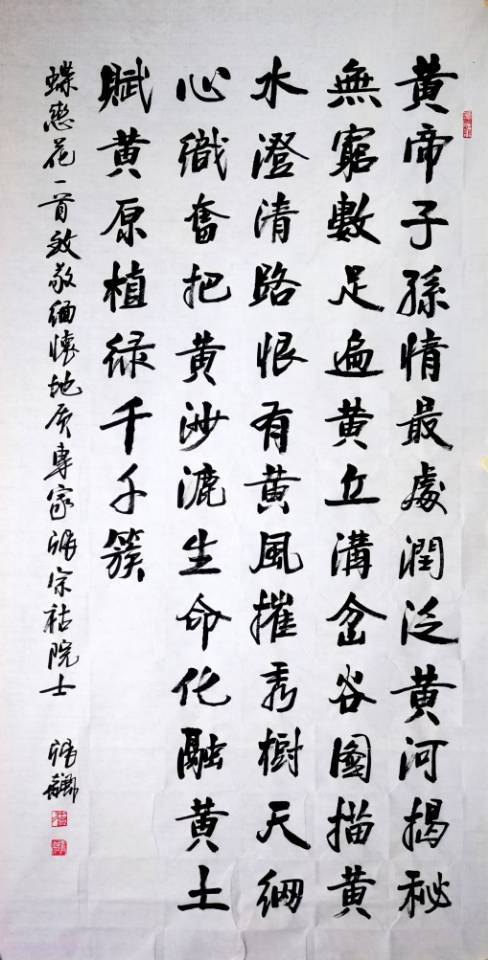 黄帝子孫情最處潤泛黄河揭秘
無窮數足遍黄丘溝岔谷圖描黄
水澄清路恨有黄風摧秀樹天網
心織奮把黄沙漉生命化融黄土
賦黄原植绿千千簇
蝶戀花一首致敬緬懷地质專家張宗祜院士